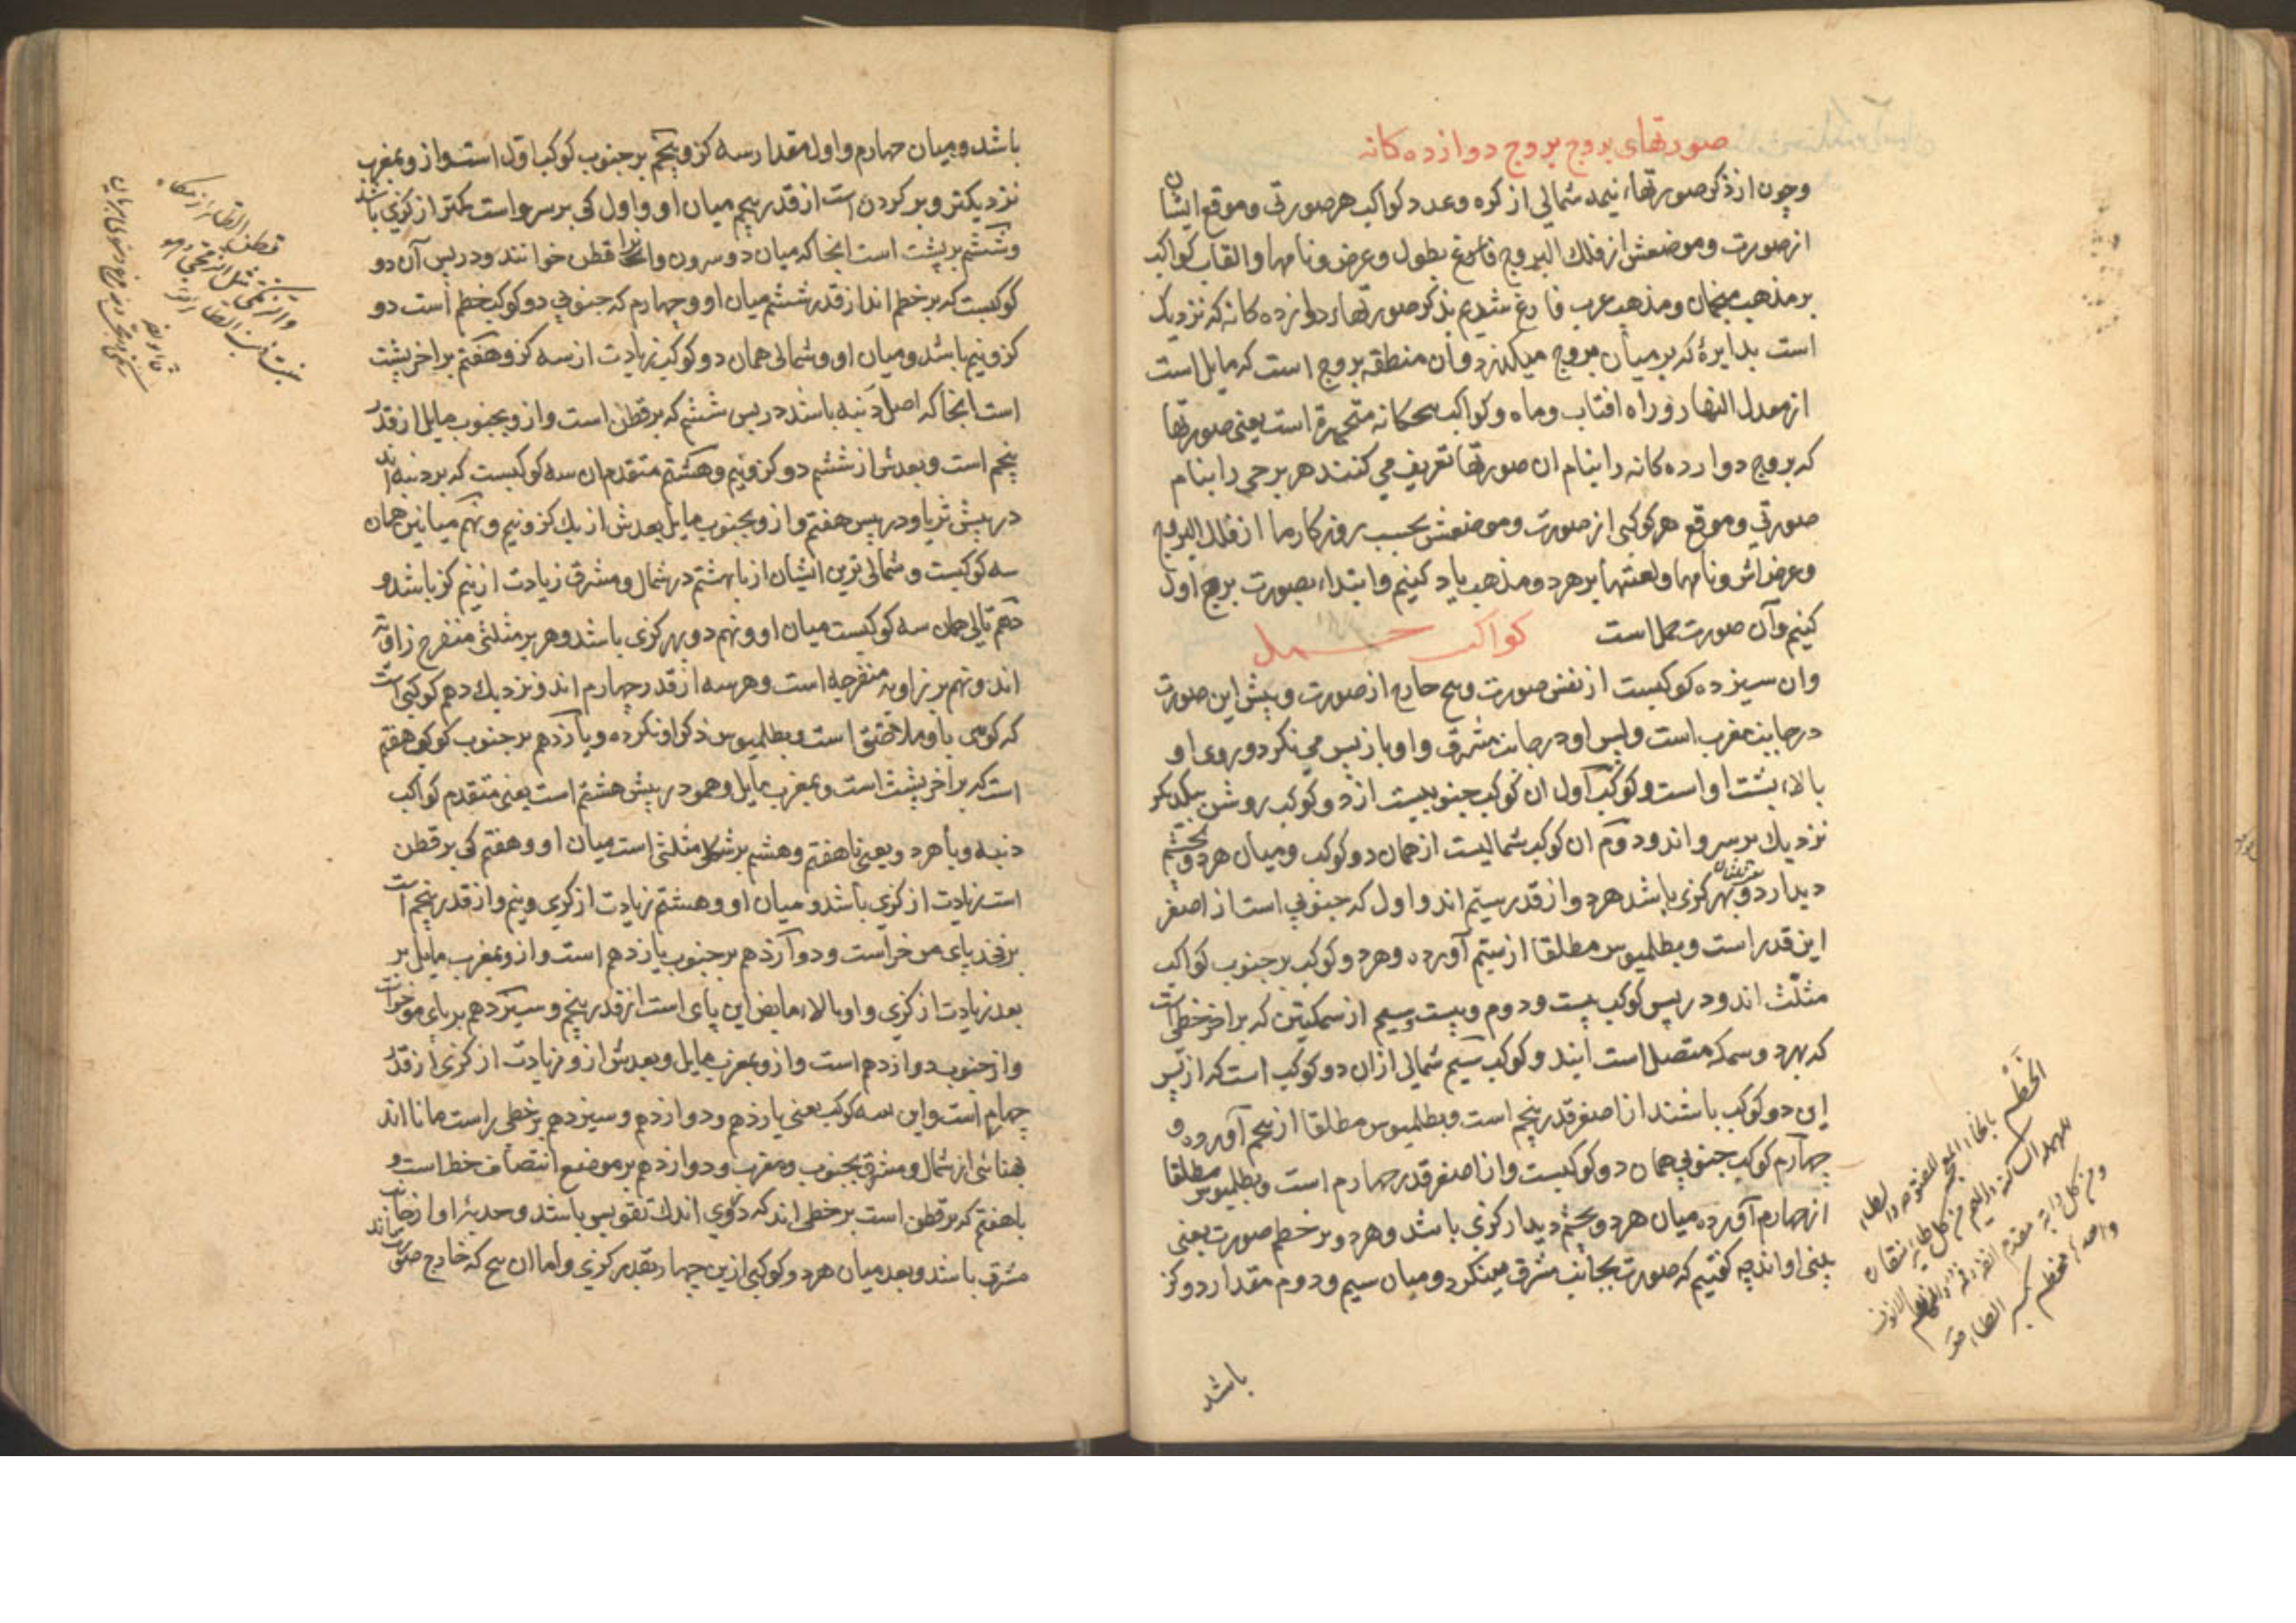 صورتهای بروج بروج دوازده کانه
وچون از ذکر صورتهاء نیمه شمالی از کره وعدد کواکب هر صورتی وموقع ایشان
از صورت وموضعش از فلک البروج فارغ بطول وعرض ونامها والقاب کواکب
بر مذهب منجمان ومذهب عرب فارغ شدیم بذکر صورتهاء دوازده کانه که نزدیک
است بدایرهٔ که بر میان بروج میکذرد وان منطقه بروج است که مایل است
از معدل النهار وراه افتاب وماه وکواکب متحیره است یعنی صورتها
که بروج دوازده کانه را بنام ان صورتها تعریف می کنند هر برجی را بنام
صورتی وموقع هر کوکبی از صورت وموضعش بحسب روزکار ما از فلک البروج
وعرض اش ونامها ولعبتها بر هر دو مذهب یاد کنیم وابتداء بصورت برج اول
کنیم وآن صورت حمل است کواکب حمل
وان سیزده کوکبست از نفس صورت وپنج خارج از صورت وپیش این صورت
در جانب مغرب است وپس او در جانب مشرق واو باز پس می نکرد وروی او
بالاء پشت اواست وکوکب اول ان کوکب جنوبیست از دو کوکب روشن بیکدیکر
نزدیک بر سرو اند ودوم ان کوکب شمالیست از همان دو کوکب ومیان هر دو بچشم
دیدار دو بهر کزی باشد هر دو از قدر سیم اند واول که جنوبی است از اصغر
این قدر است وبطلمیوس مطلقا از سیم آورده وهر دو کوکب بر جنوب کواکب
مثلث اند ودر پس کوکب بیست ودوم وبیست وسیم از سمکتین که بر اخر خطی است
که بهر دو سمکه متصل است ایند وکوکب سیم شمالی ازان دو کوکب است که از پس
این دو کوکب باشند از اصغر قدر پنجم است وبطلمیوس مطلقا از پنجم آورده و
چهارم کوکب جنوبی همان دو کوکبست واز اصغر قدر چهارم است وبطلمیوس مطلقا
از چهارم آورده میان هر دو بچشم دیدار کزی باشد وهر دو بر خطم صورت یعنی
بینی او اند چه کفتیم که صورت بجانب مشرق مینکرد ومیان سیم ودوم مقدار دو کز
باشد
باشد ومیان چهارم واول مقدار سه کز وپنجم بر جنوب کوکب اول است واز و بمغرب
نزدیکتر وبر کردن است از قدر پنجم میان او واول کی بر سرو است کمتر از کزی باشد
وششم بر پشت است انجا که میان دو سرون وانرا قطن خوانند ودر پس آن دو
کوکبست که بر خطم اند از قدر ششم میان او وچهارم که جنوبی دو کوکب خطم است دو
کز ونیم باشد ومیان او وشمالی همان دو کوکب زیادت از سه کز وهفتم بر اخر پشت
است انجا که اصل دنبه باشد در پس ششم که بر قطن است واز و بجنوب مایل از قدر
پنجم است وبعدش از ششم دو کز ونیم وهشتم متقدم ان سه کوکبست که بر دنبه اند
در پیش ثریا ودر پس هفتم واز و بجنوب مایل بعدش از یک کز ونیم ونهم میانین همان
سه کوکبست وشمالی ترین ایشان از با هشتم در شمال ومشرق زیادت از نیم کز باشد و
دهم تالی همان سه کوکبست میان او ونهم دو بهر کزی باشد وهر بر مثلثی منفرج زاویه
اند ونهم بر زاویه منفرجه است وهر سه از قدر چهارم اند ونزدیک دهم کوکبی است
که کویی باو ملاصق است وبطلمیوس ذکر او نکرده ویازدهم بر جنوب کوکب هفتم
است که بر اخر پشت است وبمغرب مایل وهمو در پیش هشتم است یعنی متقدم کواکب
دنبه وبا هر دو یعنی با هفتم وهشتم بر شکل مثلثی است میان او وهفتم کی بر قطن
است زیادت از کزی باشد ومیان او وهشتم زیادت از کزی ونیم واز قدر پنجم است
بر فخذ پای موخراست ودوازدهم بر جنوب یازدهم است واز و بمغرب مایل بر
بعد زیادت از کزی واو بالاء مابض این پای است از قدر پنجم وسیزدهم بر پای موخر است
واز جنوب دوازدهم است واز و بمغرب مایل وبعدش از و زیادت از کزی از قدر
چهارم است واین سه کوکب یعنی یازدهم ودوازدهم وسیزدهم بر خطی راست مانا اند
از شمال ومشرق بجنوب ومغرب ودوازدهم بر موضع انتصاف خط است و
با هفتم که بر قطن است بر خطی اند که دروی اندک تقویس باشد وحدبهٔ او از جانب
مشرق باشد وبعد میان هر دو کوکبی ازین چهار بقدر کزی واما ان پنج که خارج صورت اند